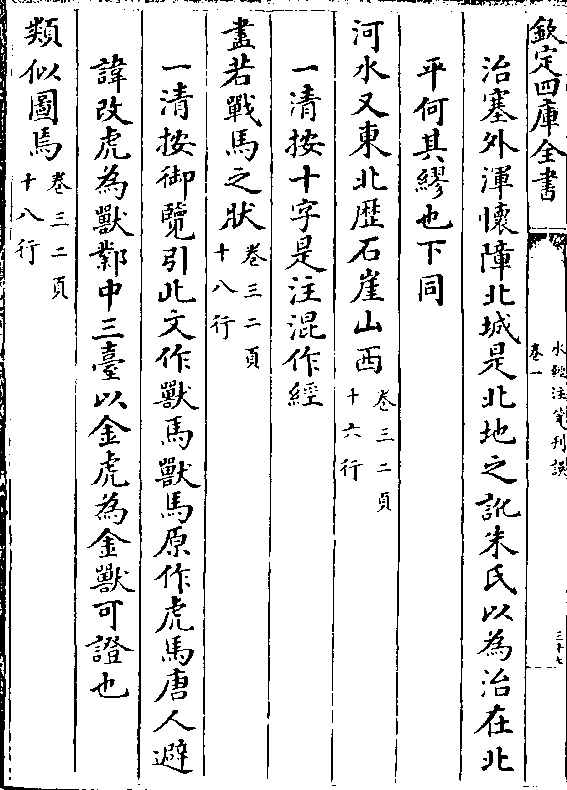 欽定四庫全書
水經注箋刊誤
卷一
三十七
治塞外渾懷障北城是北地之訛朱氏以為治在北
平何其繆也下同
河水又東北歷石崖山西卷三二頁十六行
一清按十字是注混作經
盡若戰馬之狀卷三二頁十八行
一清按御覽引此文作獸馬獸馬原作虎馬唐人避
諱改虎為獸鄴中三臺以金虎為金獸可證也
類似圖焉卷三二頁十八行